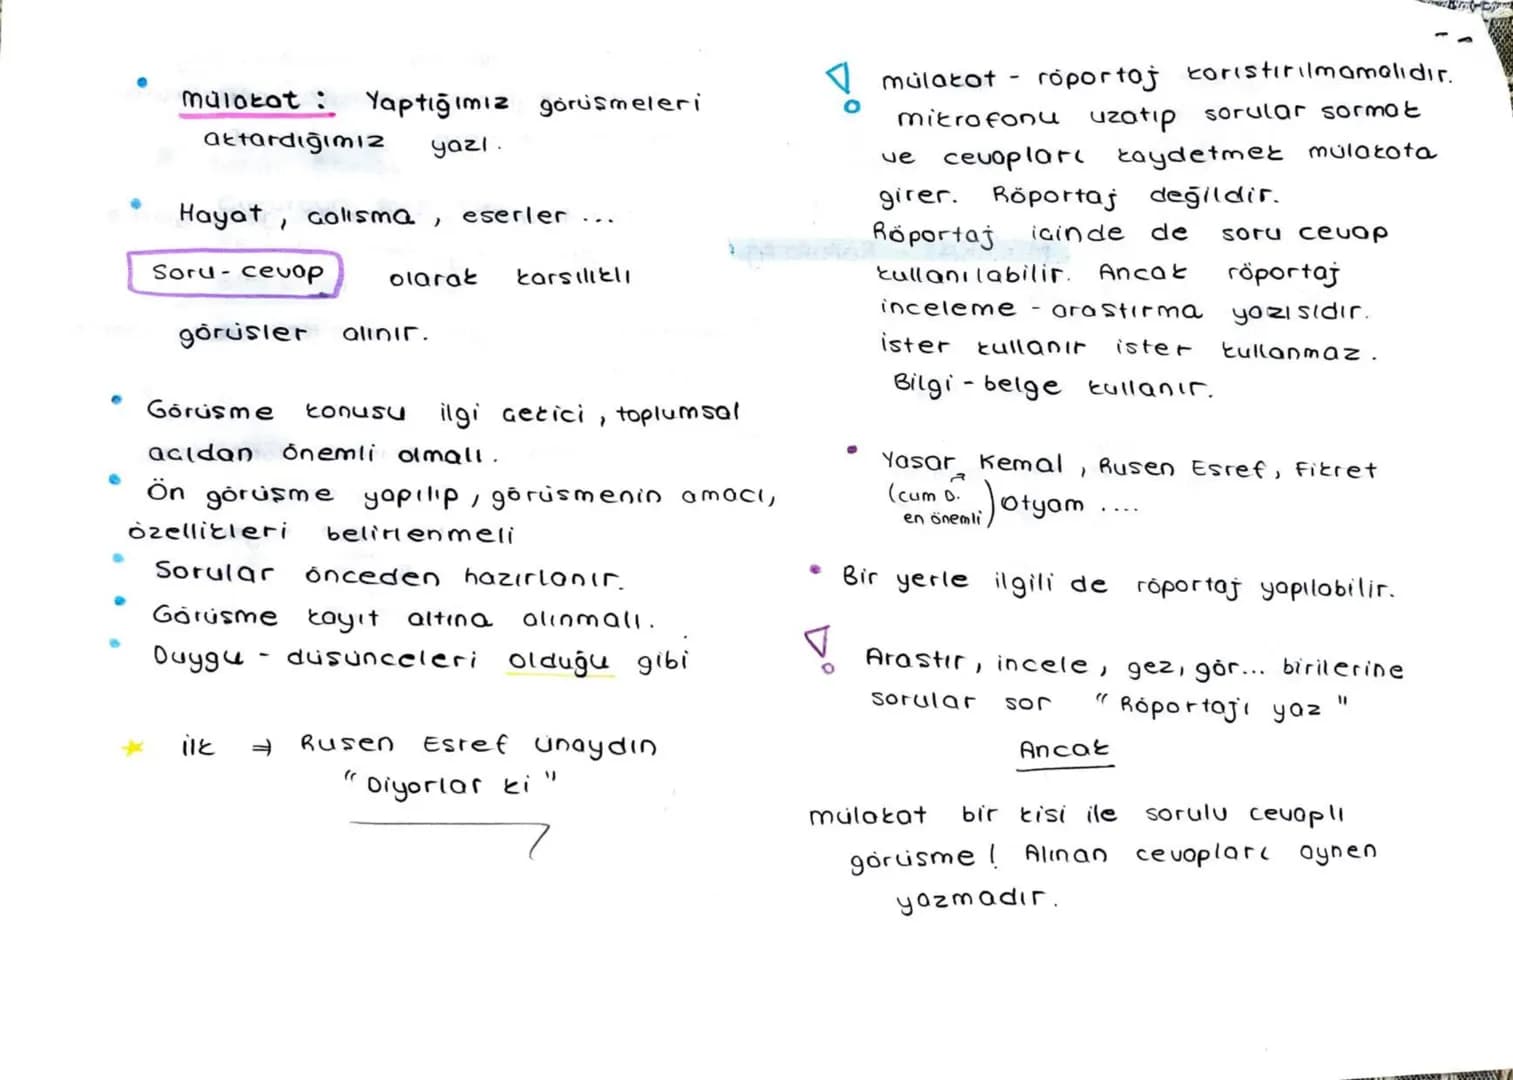 mülakat : Yaptığımız görüşmeleri
aktardığımız yazı.
Hayat, çalışma, eserler ...
Soru-cevap olarak karşılıklı
görüşler alınır.
Görüşme konusu ilgi çekici, toplumsal
açıdan önemli olmalı.
Ön görüşme yapılıp, görüşmenin amacı,
özellikleri belirlenmeli
Sorular önceden hazırlanır.
Görüşme kayıt altına alınmalı.
Duygu - düşünceleri olduğu gibi
ilk ⇒ Ruşen Eşref Ünaydın
"Diyorlar ki"
mülakat - röportaj karıştırılmamalıdır.
mikrofonu uzatıp sorular sormak
ve cevapları kaydetmek mülakata
girer. Röportaj değildir.
Röportaj içinde de soru cevap
kullanılabilir. Ancak röportaj
inceleme - araştırma yazısıdır.
ister kullanır ister kullanmaz.
Bilgi - belge kullanır.
Yaşar Kemal, Ruşen Eşref, Fikret
(cum D. en önemli) Otyam ....
Bir yerle ilgili de röportaj yapılabilir.
Araştır, incele, gez, gör... birilerine
sorular sor "Röportajı yaz"
Ancak
mülakat bir kişi ile sorulu cevaplı
görüşme! Alınan cevapları aynen
yazmadır.